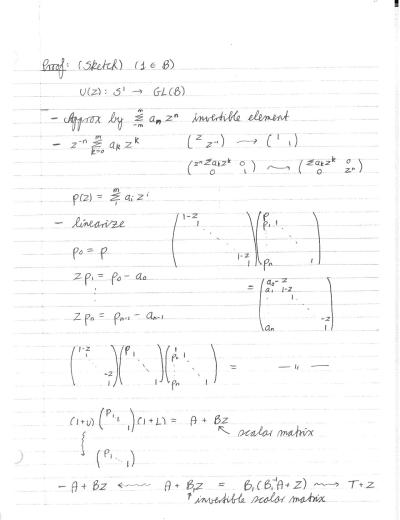 Proof: (Sketch) (1 ∈ B)
U(z): S¹ → GL(B)
- Approx by Σ_{-m}^{m} a_m z^n invertible element
- z^{-n} Σ_{k=0}^{m} a_k z^k (z z^{-1}) ⟿ (1 1)
(z^{-n}Σa_kz^k 0 0 1) ⟿ (Σa_kz^k 0 0 z^{-n})
p(z) = Σ_{i}^{m} a_i z^i
- linearize (1 -z 1 ⋱ 1 -z 1) (p p_1 1 ⋮ ⋱ p_n 1)
p_0 = p
z p_1 = p_0 - a_0
⋮ = (a_0 -z a_1 1 -z ⋮ ⋱ -z a_n 1)
z p_n = p_{n-1} - a_{n-1}
(1 -z ⋱ -z 1) (p 1 ⋱ 1) (1 p_1 1 ⋮ ⋱ p_n 1) = — " —
(1+U) (p 1 ⋱ 1) (1+L) = A + Bz
scalar matrix
(p 1 ⋱ 1)
- A + Bz ⟿ A + B_1z = B_1(B_1^{-1}A + z) ⟿ T + z
invertible scalar matrix